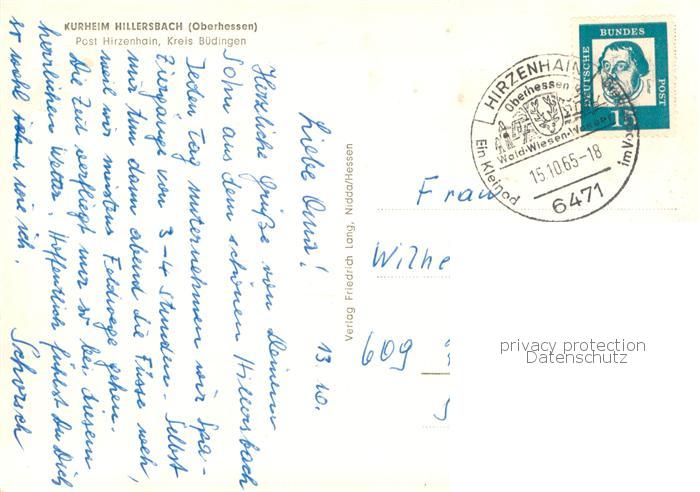 KURHEIM HILLERSBACH (Oberhessen)
Post Hirzenhain, Kreis Büdingen
13. 10.
Liebe Oma!
Herzliche Grüße von Deinem
Sohn aus dem schönen Hillersbach
Jeden Tag unternehmen wir Spa-
ziergänge von 3-4 Stunden. Selbst
mir tun dann abend die Füsse weh,
weil wir meistens Feldwege gehen.
Die Zeit verfliegt nur so bei diesem
herrlichen Wetter. Hoffentlich fühlst Du Dich
so wohl wie ich.
Schorsch
Verlag Friedrich Lang, Nidda/Hessen
DEUTSCHE
BUNDES
POST
Luther
15
HIRZENHAIN
Oberhessen
Wald-Wiesen-Wasser
Ein Kleinod
im Vo
15.10.65-18
6471
Frau
Wilhe
609
privacy protection
Datenschutz